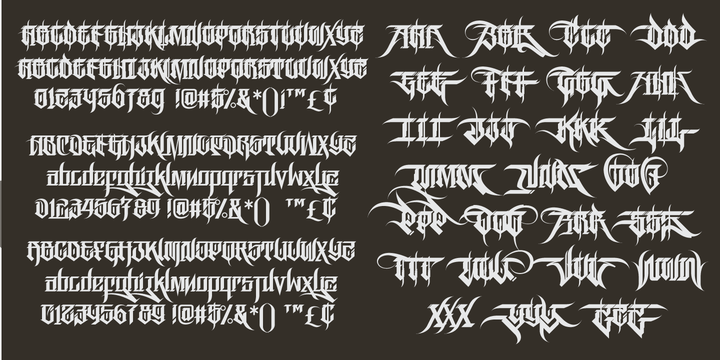 ABCDEFGHIJKLMNOPQRSTUVWXYZ
ABCDEFGHIJKLMNOPQRSTUVWXYZ
0123456789 !@#$%&*()i™£¢
ABCDEFGHIJKLMNOPQRSTUVWXYZ
abcdefghijklmnopqrstuvwxyz
0123456789 !@#$%&*() ™£¢
ABCDEFGHIJKLMNOPQRSTUVWXYZ
abcdefghijklmnopqrstuvwxyz
0123456789 !@#$%&*() ™£¢
AAA BBB CCC DDD
EEE FFF GGG HHH
III JJJ KKK LLL
MMM NNN OOO
PPP QQQ RRR SSS
TTT UUU VVV WWW
XXX YYY ZZZ